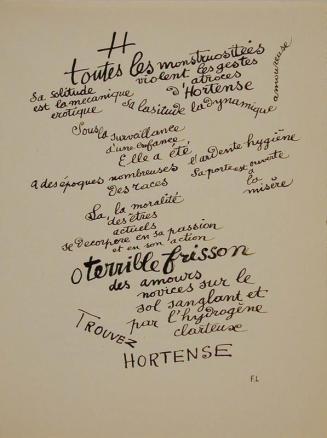 H
toutes les monstruosités
violent les gestes
atroces
d'Hortense
Sa solitude
est la mecanique
erotique
sa lasitude la dynamique
amoureuse
Sous la surveillance
d'une enfance
Elle a été,
a des époques nombreuses
l'ardente hygiène
Des races
Sa porte est ouverte
a
la
misère
La, la moralité
des êtres
actuels
se Decorpore en sa passion
et en son action
O terrible frisson
des amours
novices sur le
sol sanglant et
par l'hydrogène
clarteuse
TROUVEZ
HORTENSE
F.L